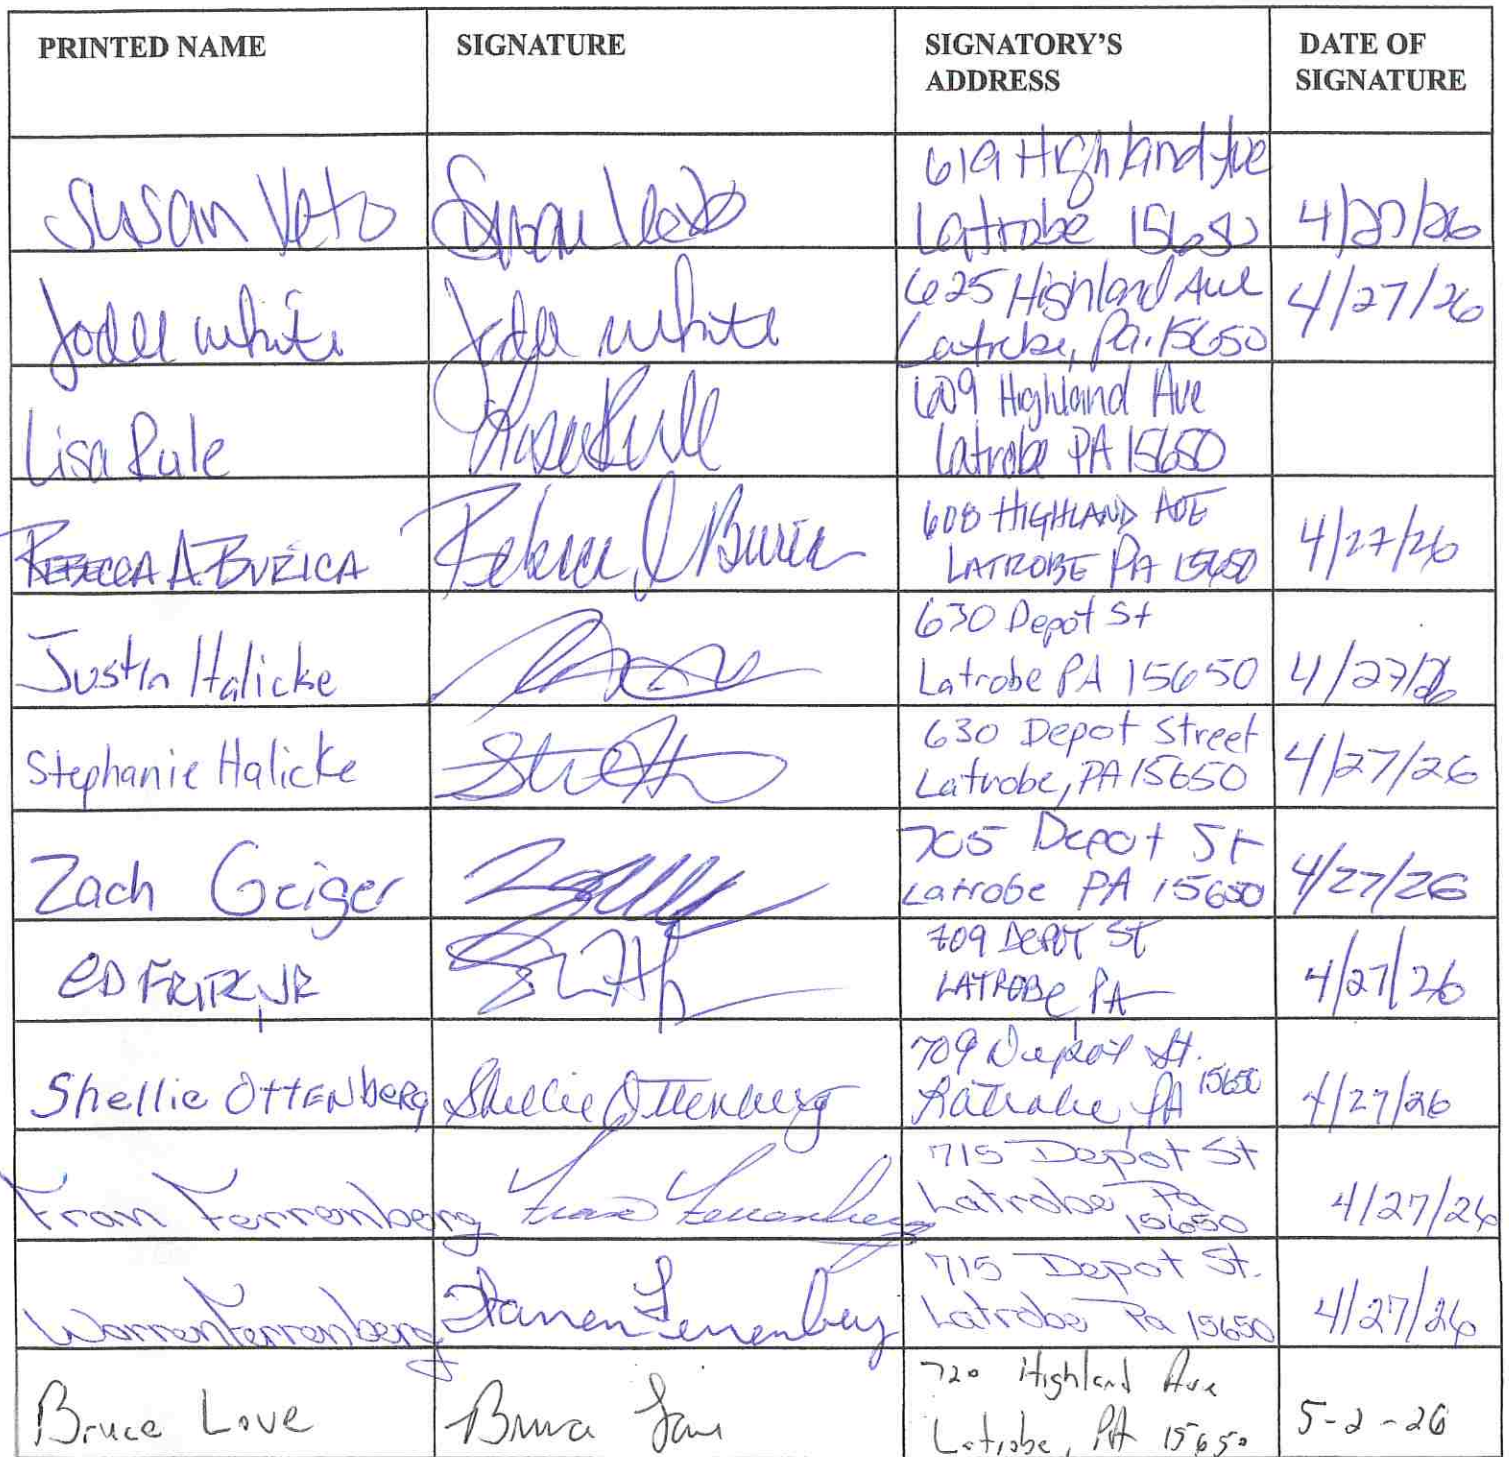 PRINTED NAME SIGNATURE SIGNATORY'S ADDRESS DATE OF SIGNATURE
Susan Veto Susan Veto 619 Highland Ave
Latrobe 15650 4/27/26
Jodel White Jodel White 625 Highland Ave 4/27/26
Latrobe, Pa. 15650
Lisa Rule Lisa Rule 609 Highland Ave
Latrobe PA 15650
REBECCA A BURICA Rebecca A Burica 608 HIGHLAND AVE 4/27/26
LATROBE PA 15650
Justin Halicke 630 Depot St
Latrobe PA 15650 4/27/26
Stephanie Halicke 630 Depot Street 4/27/26
Latrobe, PA 15650
Zach Geiger 705 Depot St
Latrobe PA 15650 4/27/26
ED FRITZ, JR 709 DEPOT ST
LATROBE PA 4/27/26
Shellie OttenBerg Shellie Ottenberg 709 Depot St.
Latrobe, PA 15650 4/27/26
Fran Ferrenberg Fran Ferrenberg 715 Depot St
Latrobe, Pa 15650 4/27/26
Warren Ferrenberg Warren Ferrenberg 715 Depot St.
Latrobe Pa 15650 4/27/26
Bruce Love Bruce Love 720 Highland Ave
Latrobe, PA 15650 5-2-26